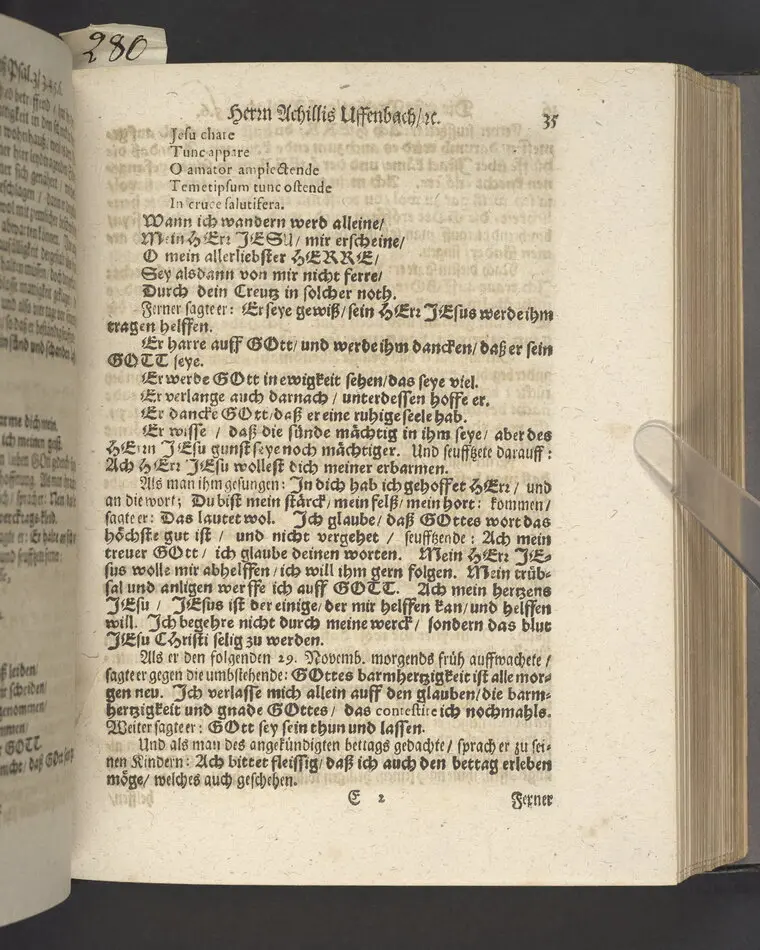 280
Herrn Achillis Uffenbach/ ꝛc. 35
Jesu chare
Tunc appare
O amator amplectende
Temetipsum tunc ostende
In cruce salutifera.
Wann ich wandern werd alleine/
Mein HErr JESU/ mir erscheine/
O mein allerliebster HERRE/
Sey alsdann von mir nicht ferre/
Durch dein Creutz in solcher noth.
Ferner sagte er: Er seye gewiß/ sein HErr JEsus werde ihm
tragen helffen.
Er harre auff GOtt/ und werde ihm dancken/ daß er sein
GOTT seye.
Er werde GOtt in ewigkeit sehen/ das seye viel.
Er verlange auch darnach/ unterdessen hoffe er.
Er dancke GOtt/ daß er eine ruhige seele hab.
Er wisse/ daß die sünde mächtig in ihm seye/ aber des
HErrn JEsu gunst seye noch mächtiger. Und seufftzete darauff:
Ach HErr JEsu wollest dich meiner erbarmen.
Als man ihm gesungen: In dich hab ich gehoffet HErr/ und
an die wort; Du bist mein stärck/ mein felß/ mein hort: kommen/
sagte er: Das lautet wol. Ich glaube/ daß GOttes wort das
höchste gut ist/ und nicht vergehet/ seufftzende: Ach mein
treuer GOtt/ ich glaube deinen worten. Mein HErr JE-
sus wolle mir abhelffen/ ich will ihm gern folgen. Mein trüb-
sal und anligen werffe ich auff GOTT. Ach mein hertzens
JEsu/ JEsus ist der einige/ der mir helffen kan/ und helffen
will. Ich begehre nicht durch meine werck/ sondern das blut
JEsu CHristi selig zu werden.
Als er den folgenden 29. Novemb. morgends früh auffwachete/
sagte er gegen die umbstehende: GOttes barmhertzigkeit ist alle mor-
gen neu. Ich verlasse mich allein auff den glauben/ die barm-
hertzigkeit und gnade GOttes/ das contestire ich nochmahls.
Weiter sagte er: GOtt sey sein thun und lassen.
Und als man des angekündigten bettags gedachte/ sprach er zu sei-
nen Kindern: Ach bittet fleissig/ daß ich auch den bettag erleben
möge/ welches auch geschehen.
E 2 Ferner